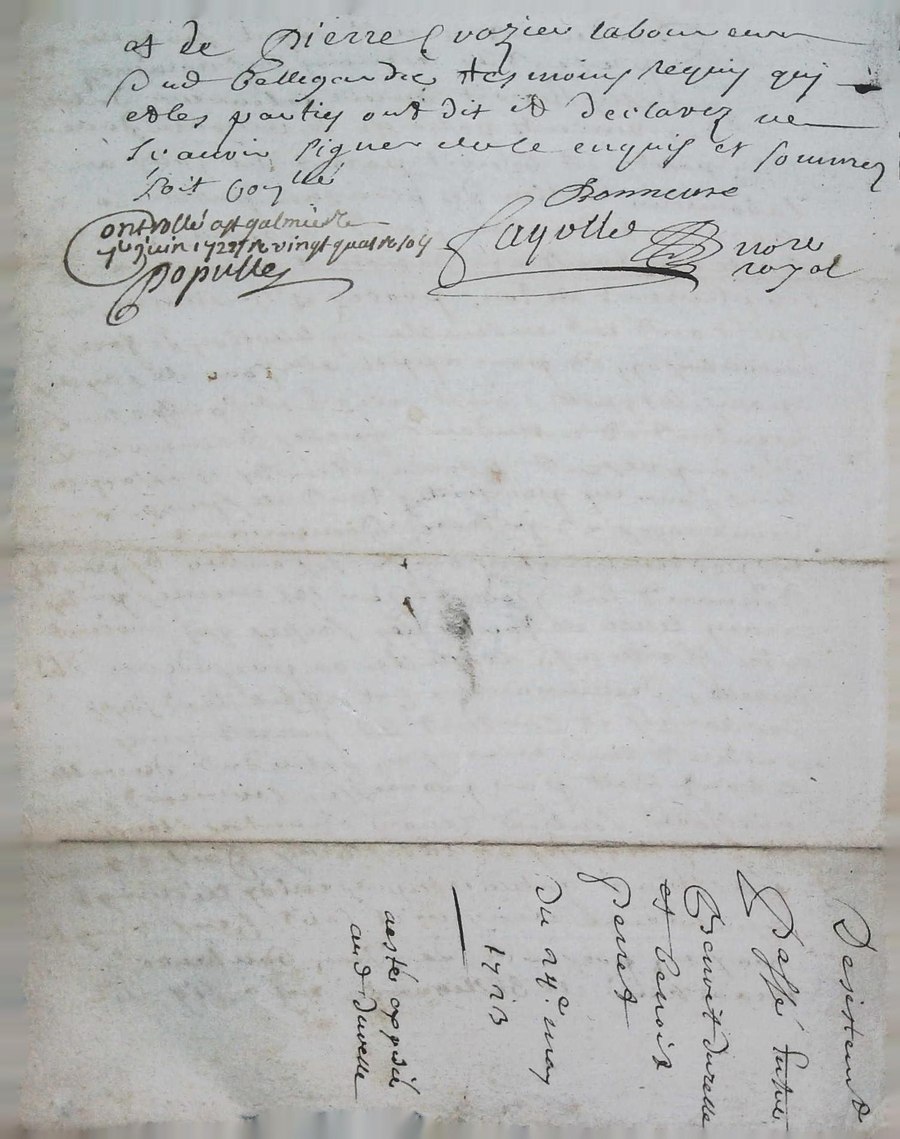 et de Pierre Crozier laboureur
dud Bellegarde tesmoins requis qui
et les parties ont dit et declarez ne
scavoir signer de ce enquis et sommez
soit
Bonneure
ontrollé a st galmier le
juin 1723 R vingt quatre sols
Fayolle
nore
royal
Populle
Desistemt
Passé Entre
Benoit Durelle
et benoit
Peret
Du 24e may
1723
aesté expédié
aud durelle